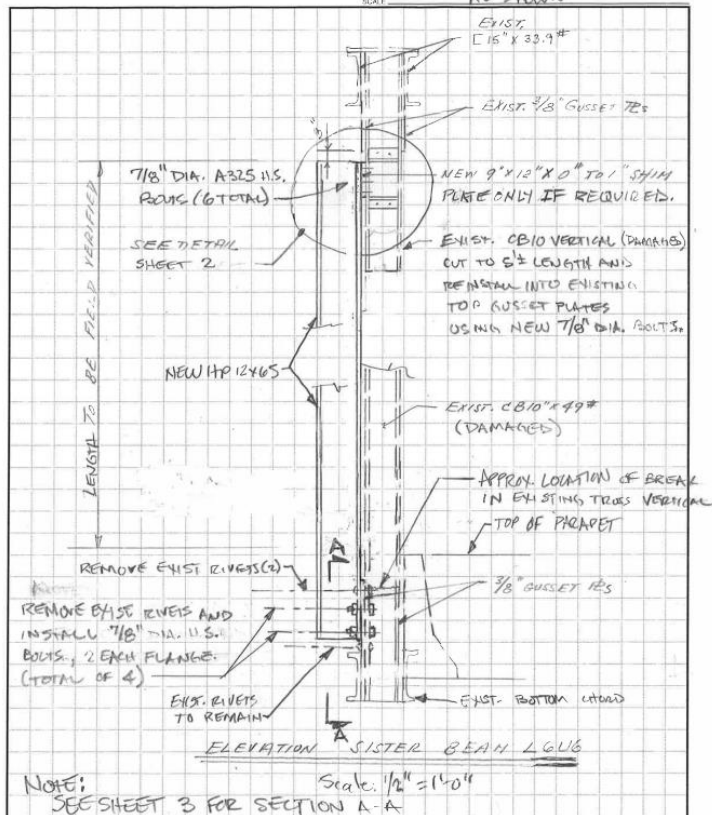 SCALE
EXIST.
[ 15" X 33.9#
EXIST. 3/8" GUSSET PLs
3"
7/8" DIA. A325 H.S.
BOLTS (6 TOTAL)
NEW 9" X 12" X 0" TO 1" SHIM
PLATE ONLY IF REQUIRED.
SEE DETAIL
SHEET 2
EXIST. CB10 VERTICAL (DAMAGED)
CUT TO 5'± LENGTH AND
REINSTALL INTO EXISTING
TOP GUSSET PLATES
USING NEW 7/8" DIA. BOLTS.
LENGTH TO BE FIELD VERIFIED
NEW HP 12X65
EXIST. CB10" X 49#
(DAMAGED)
APPROX. LOCATION OF BREAK
IN EXISTING TRUSS VERTICAL
TOP OF PARAPET
A
REMOVE EXIST RIVETS (2)
3/8" GUSSET PLS
REMOVE EXIST RIVETS AND
INSTALL 7/8" DIA. H.S.
BOLTS, 2 EACH FLANGE.
(TOTAL OF 4)
EXIST. RIVETS
TO REMAIN
EXIST. BOTTOM CHORD
A
ELEVATION SISTER BEAM L6U6
Scale: 1/2" = 1'-0"
NOTE:
SEE SHEET 3 FOR SECTION A-A